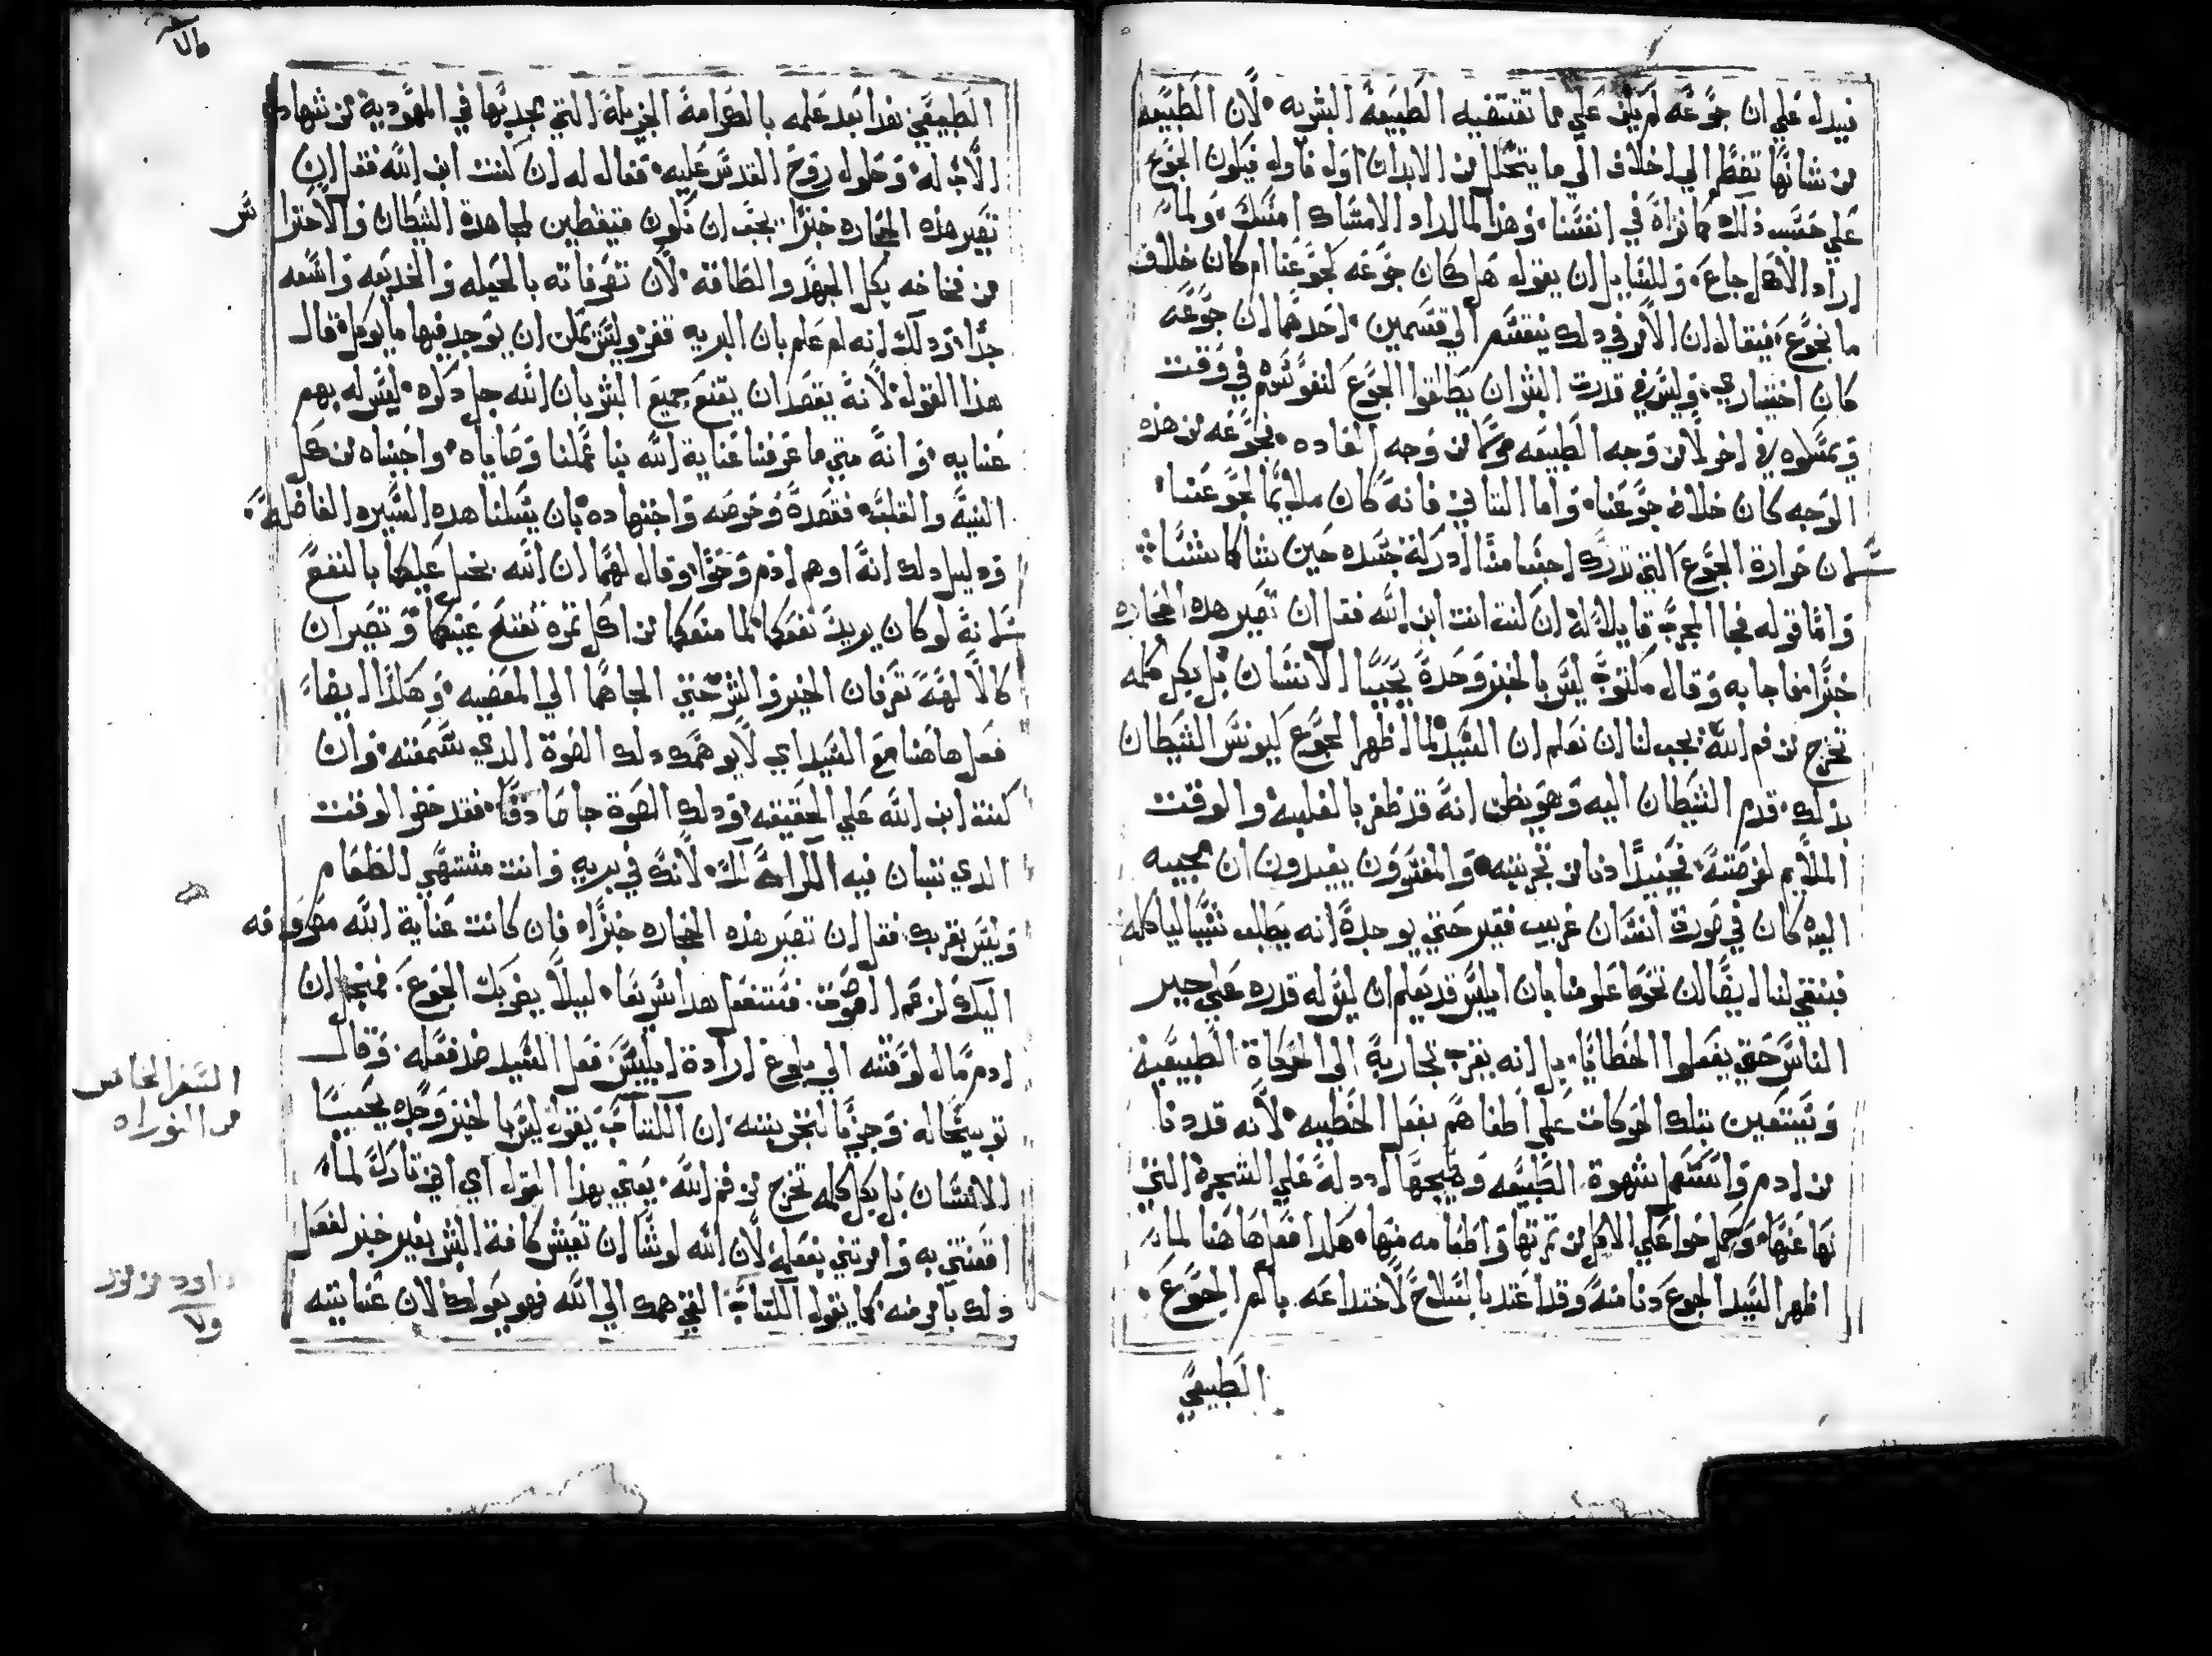 فيدل علي ان جوعه لم يكن علي ما تقتضيه الطبيعة البشريه لان الطبيعه
من شانها تضطر الي اخلاف الي ما يتحلل من الابدان اول فاول فيكون الجوع
علي حسب ذلك كما نراه في انفسنا وهذا لما اراد الامساك امسك ولما
اراد الاكل جاع وللقايل ان يقول هل كان جوعه كجوعنا ام كان خلاف
ما نجوع فيقال ان الامر في دلك ينقسم الي قسمين احدهما ان جوعه
كان اختياري وليس في قدرت البشر ان يطلقوا الجوع لنفوسهم في وقت
ويمسكوه في اخر لا من وجه الطبيعه ولا من وجه العاده فجوعه من هذه
الوجه كان خلاف جوعنا واما التاني فانه كان ملايما لجوعنا
ان حرارة الجوع التي تدرك احسامنا ادركة جسده حين شا كما يشا
واما قوله فجا المجرب قايلا له ان كنت انت ابن الله فقل ان تصير هده الحجاره
خبزا فاجابه وقال مكتوب ليس بالخبز وحدة يحيا الانسان بل بكل كلمه
تخرج من فم الله يجب لنا ان نعلم ان السيد لما اظهر الجوع ليونس الشيطان
بذلك قدم الشيطان اليه وهو يظن انه قد ظفر بالغلبه والوقت
الملايم لفرصته فحينيدا دنا من تجربته والمفسرون يفيدون ان مجييه
اليه كان في صورة انسان غريب فقير حتي يوجدة انه يطلب شيا لياكله
فينبغي لنا ايضا ان نحو علومنا بان ابليس قد يعلم ان ليس له قدره علي جبر
الناس حتي يفعلوا الخطايا بل انه يقرب تجاربة الي الحركاة الطبيعية
ويستعين بتلك الحركات علي اطغاهم بفعل الخطييه لانه قد دنا
من ادم واستعمل شهوة الطبيعه وهيجها اد دله علي الشجرة التي
نها عنها وحمل حوا علي الاكل من تمرتها واطعامه منها هكدا فعل هاهنا لما
اظهر السيد الجوع دنا منه وقد اعتد بالسلاح لاختداعه بالم الجوع
الطبيعي
الطبيعي بعد علمه بالكرامة الجزيلة التي مجد بها في المعمودية من شهادة
الاب له وحلول روح القدس عليه فقال له ان كنت ابن الله فقل ان
تصير هذه الحجاره خبزا يجب ان نكون متيقظين لمجاهدة الشيطان والاحتراس
من فخاخه بكل الجهد والطاقة لان تصرفاته بالحيله والخديعه واسعه
جدا ودلك انه لم علم بان البريه قفر وليس يمكن ان يوجد فيها ما يوكل قال
هذا القول لانة يقصد ان يقنع جميع البشر بان الله جل دكره ليس له بهم
عنايه وانه متي ما عرفنا عناية الله بنا عملنا وصاياه واحبناه من كل
النية والقلب فقصدة وحرصه واجتهاده بان يسلبنا هده السيره الفاضلة
ودليل دلك انه اوهم ادم وحوا وقال لهما ان الله بخل عليكما بالنفع
لانه لو كان يريد نفعكما لما منعكما من اكل تمره تفتح عينيكما وتصيران
كالالهة تعرفان الخير والشر حتي الجاهما الي المعصيه وهكذا ايضا
فعل هاهنا مع السيد اي لا يوهمك دلك الصوة الدي سمعته وان
كنت ابن الله علي الحقيقه ودلك الصوة جا صادقا فقد حضر الوقت
الدي تبان فيه الكرامة لك لانك في بريه وانت مشتهي الطعام
وليس بقربك فقل ان تصير هذه الحجاره خبزا فان كانت عناية الله مصروفه
اليك كزعم الصوت فستفعل هدا سريعا ليلا يضر بك الجوع فمتجل ان
ادم مال لوقته الي بلوغ ارادة ابليس فعل السيد ضد فعله وقال
توبيخا له وحزفا لتجربته ان الكتاب يقول ليس بالخبز وحده يحيا
الانسان بل بكل كلمه تخرج من فم الله يعني بهذا القول اي اني تارك لما
اقنعتني به وامرتني بفعله لان الله لو شا ان تعيش كافة البشر بغير خبز لفعل
دلك بامر منه كما يقول الكتاب القي همك الي الله فهو يعولك لان عنايته
السفر الخامس
من التوراه
داود مزمور